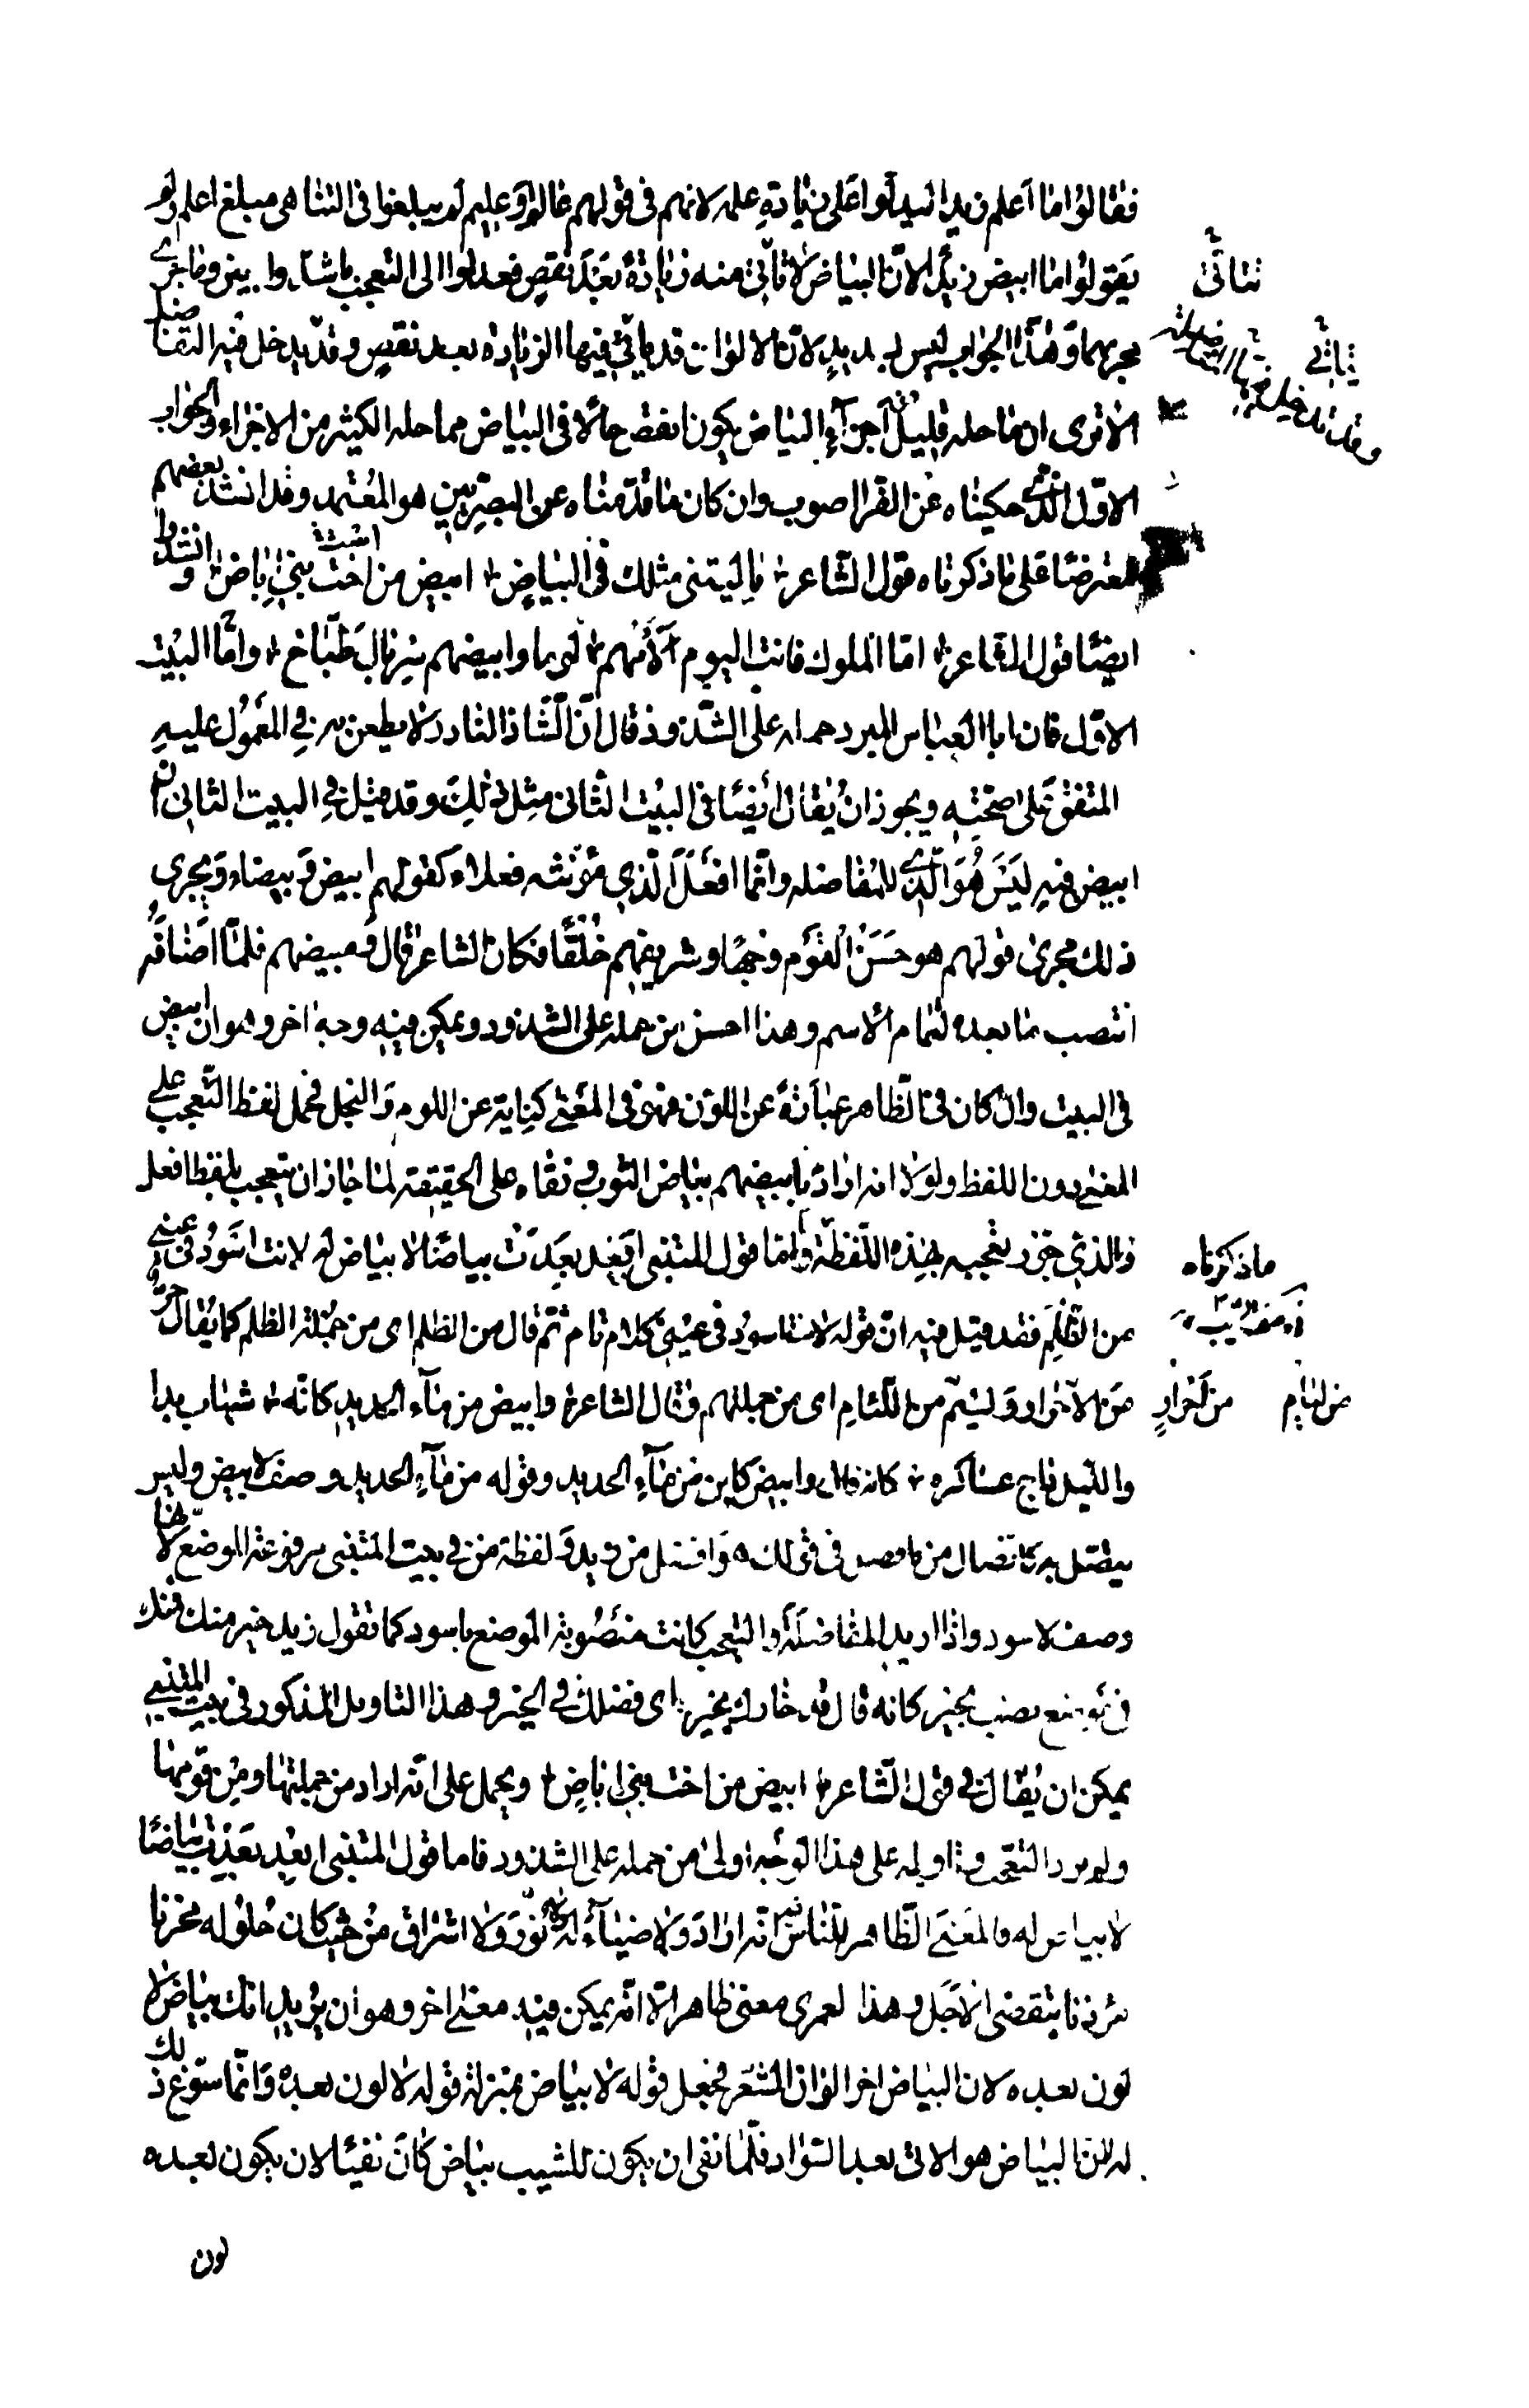 فقالوا ما اعلم زيدا ليدلوا على زيادة علمه لانهم في قولهم عالم وعليم لم يبلغوا في الثناء هي مبلغ اعلم ولم
يقولوا ما ابيض زيد الان البياض لا تأتي منه زيادة بعد نقص فعدلوا الى التعجب باشد وابين وما جرى
مجريهما وهذا الجواب ليس بسديد لان الالوان قد يأتي فيها الزيادة بعد نقص وقد يدخل فيه التفاضل
الا ترى ان ما حله قليل اجزاء البياض يكون انقص حالا في البياض مما حله الكثير من الاجزاء والجواب
الاول الذي حكيناه عن الفرا اصوب وان كان ما قدمناه عن البصريين هو المعتمد وقد انشد بعضهم
معترضا على ما ذكرناه قول الشاعر يا ليتني مثلك في البياض ابيض من اخت بني اباض وانشدوا
ايضا قول الشاعر اما الملوك فانت اليوم ألأمهم لوما وابيضهم سربال طباخ واما البيت
الاول فان ابا العباس المبرد حمله على الشذوذ وقال ان الشاذ النادر لا يطعن به في المعمول عليه
المتفق على صحته ويجوز ان يقال ايضا في البيت الثاني مثل ذلك وقد قيل في البيت الثاني ان
ابيض فيه ليس هو الذي للمفاضله وانما افعل الذي مؤنثه فعلاء كقولهم ابيض وبيضاء ويجرى
ذلك مجرى قولهم هو حسن القوم وجها وشريفهم خلقا فكان الشاعر قال ومبيضهم فلما اضافه
انتصب ما بعده لتمام الاسم وهذا احسن من حمله على الشذوذ ويمكن فيه وجه اخر وهو ان ابيض
في البيت وان كان في الظاهر عبارة عن اللون فهو في المعنى كناية عن اللوم والبخل فحمل لفظ التعجب على
المعنى دون اللفظ ولولا انه اراد بابيضهم بياض الثوب ونقاء على الحقيقة لما جاز ان يتعجب بلفظ افعل
والذي جوز تعجبه بهذه اللفظة ما ذكرناه واما قول المتنبي ابعد بعدت بياضا لا بياض له لانت اسود في عيني
من الظلم فقد قيل فيه ان قوله لانت اسود في عيني كلام تام ثم قال من الظلم اى من جملة الظلم كما يقال حر
من الاحرار ولئيم من اللئام اى من جملتهم وقال الشاعر وابيض من ماء الحديد كانه شهاب بدا
والليل داج عساكره كانه قال وابيض كاين من ماء الحديد وقوله من ماء الحديد وصف لابيض وليس
يتصل به كاتصال من بافضل في قولك هو افضل من زيد ولفظة من في بيت المتنبي مرفوعة الموضع لانها
وصف لاسود واذا اريد المفاضلة والتعجب كانت منصوبة الموضع باسود كما تقول زيد خير منك فمنك
في موضع نصب بخير كانه قال قد خارك بخير اى فضلك في الخير وهذا التاويل المذكور في بيت المتنبي
يمكن ان يقال في قول الشاعر ابيض من اخت بني اباض ويحمل على انه اراد من جملتها ومن قومها
ولم يرد التعجب وتاويله على هذا الوجه اولى من حمله على الشذوذ فاما قول المتنبي ابعد بعدت بياضا
لا بياض له فالمعنى الظاهر للناس فيه انه اراد ولا ضياء له ولا نور ولا اشراق من حيث كان حلوله محزنا
مؤذنا بتقضى الاجل وهذا لعمري معنى ظاهر الا انه يمكن فيه معنى اخر وهو ان يريد انك بياض لا
لون بعده لان البياض اخر الوان الشعر فجعل قوله لا بياض بمنزلة قوله لا لون بعده وانما سوغ ذلك
له ان البياض هو الاتي بعد السواد فلما نفى ان يكون للشيب بياض كان نفيا لان يكون بعده
لون
تتأتى
تأتي
ما ذكرناه
من لئام
من احرار